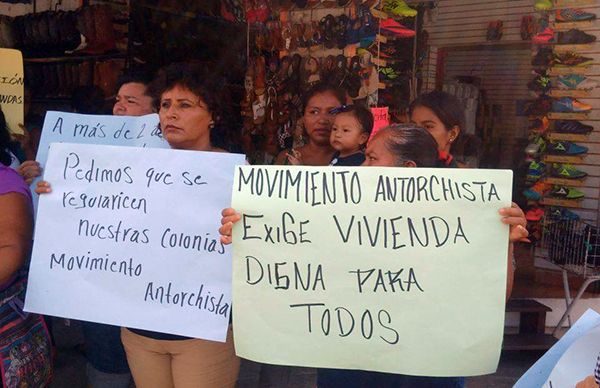 IÓN
NDAS.
A más de 2 a
Pedimos que se
regularicen
nuestras colonias
Movimiento
Antorchista
MOVIMIENTO ANTORCHISTA
EXIGE VIVIENDA
DIGNA PARA
TODOS